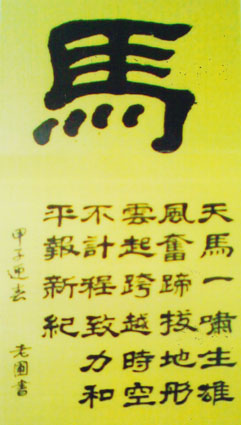 馬
天馬一嘯生雄
風奮蹄拔地彤
雲起跨越時空
不計程致力和
平報新紀
甲子
書